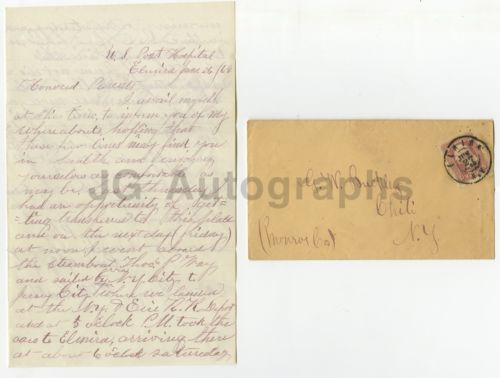 U. S. Post Hospital
Elmira June 26/64
Honored Parents
I avail myself
at this time to inform you of my
whereabouts, hoping that
these few lines may find you
in health and enjoying
yourselves as
may be Thursday
had an opportunity of get
=ting transferred to this place
and on the next day (Friday)
at noon went aboard
the Steamboat Thos. P. Way
and sailed to N. Y. City to
Jersey City where we landed
at the N. Y. & Erie R. R. Depot
and at 5 o'clock P.M. took the
cars to Elmira, arriving there
at about 6 o'clock Saturday
JG Autographs
Geo. W.
Chili
(Monroe Co)
N. Y.